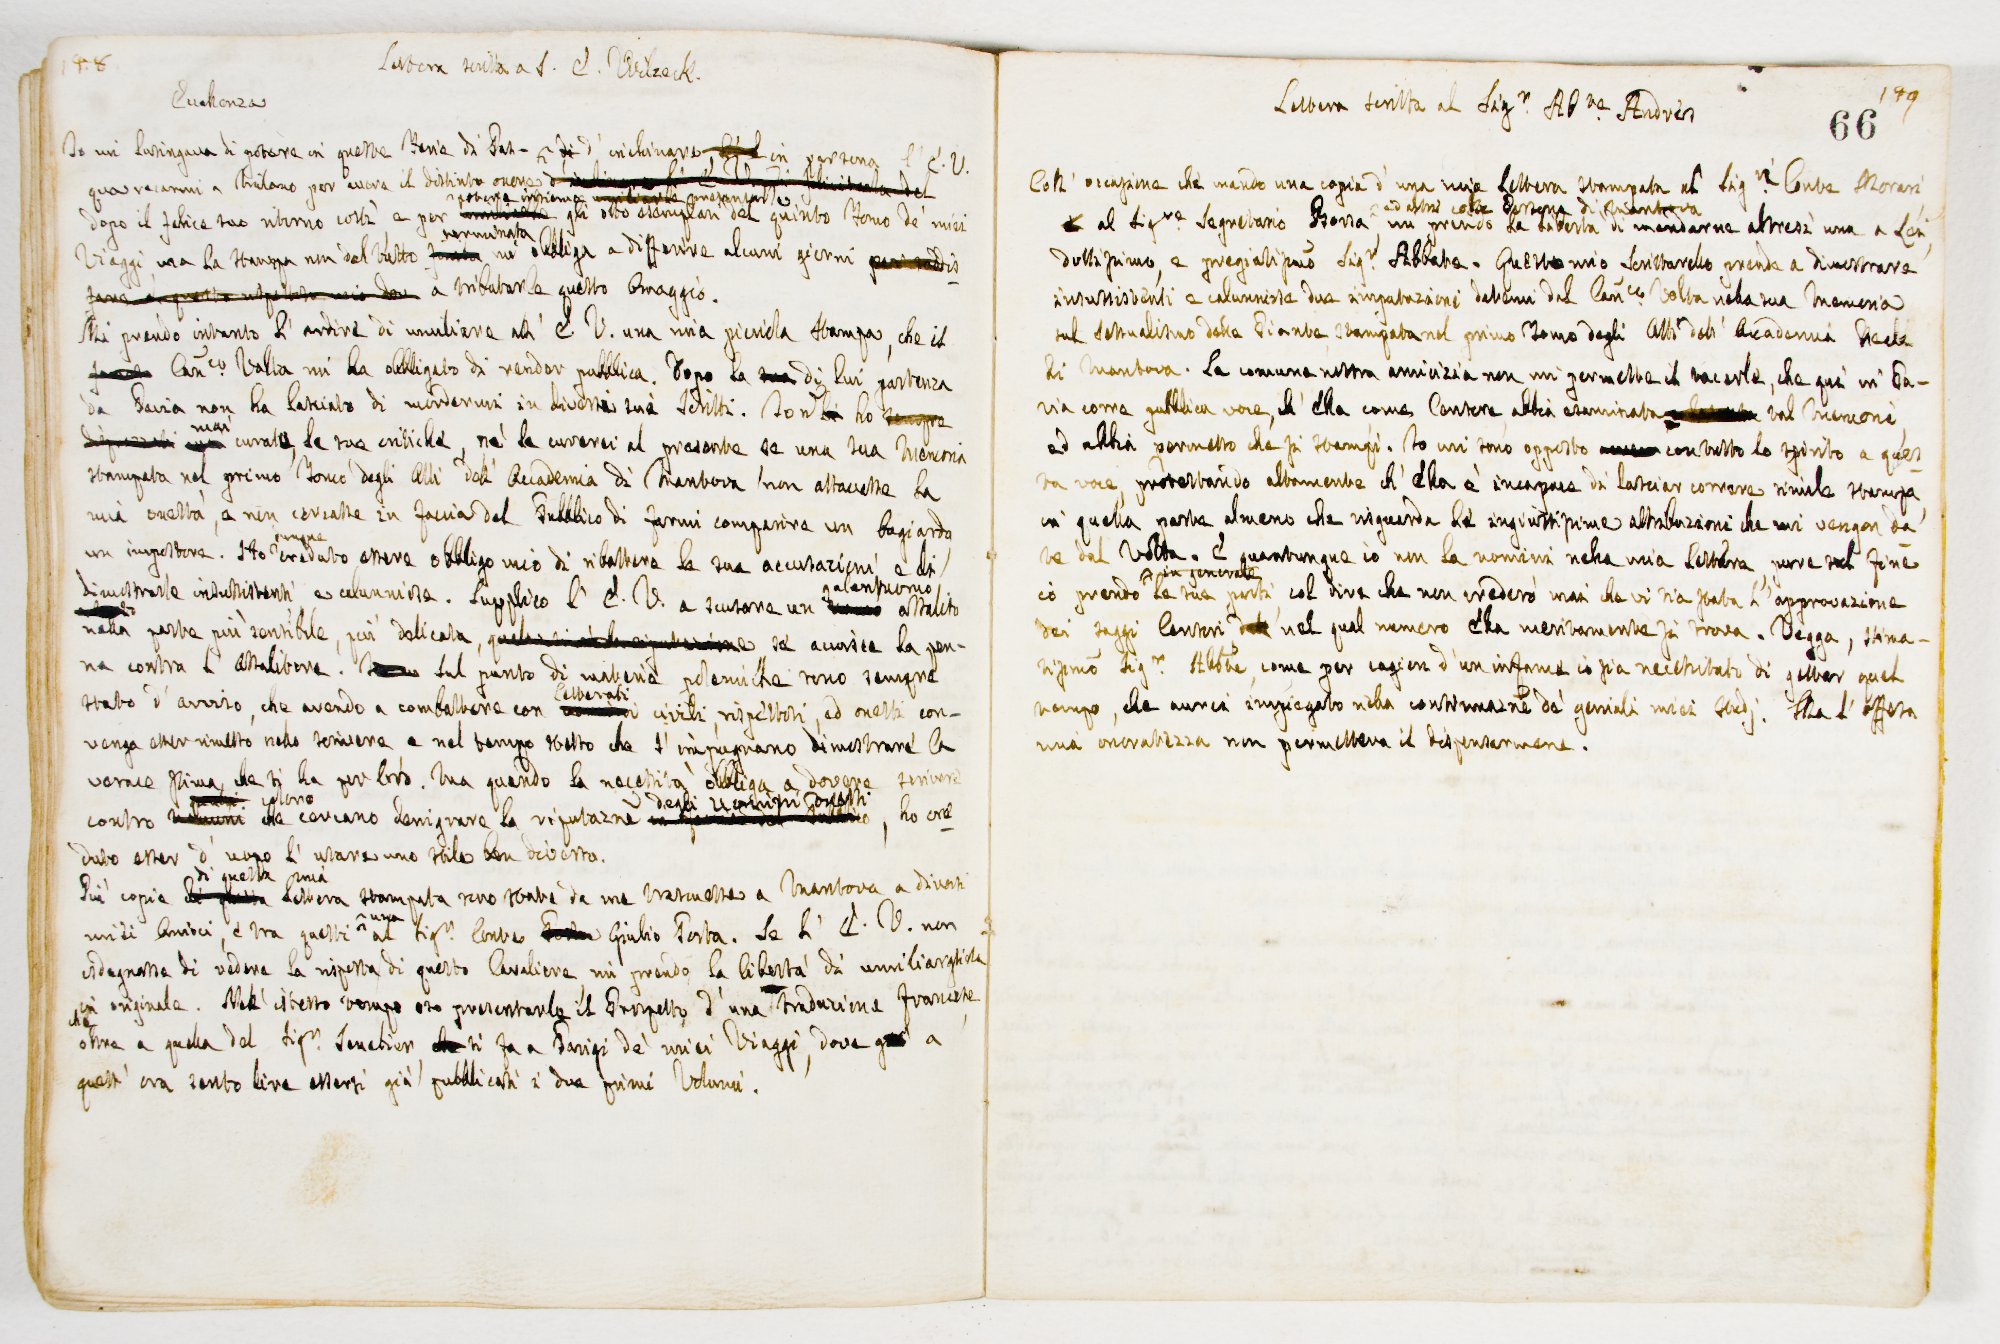 188
Lettera scritta a S. E. Wilzeck.
Eccellenza
Io mi lusingava di potere in queste Ferie di Pas- d' inchinare in persona l' E. V.
qua recarmi a Milano per avere il distinto onore
potere insieme presentarle
dopo il felice suo ritorno costà, e per gli otto esemplari del quinto Tomo de' miei
terminata
Viaggi, ma la stampa non del tutto mi obbliga a differire alcuni giorni
a tributarle questo Omaggio.
Mi prendo intanto l' ardire di umiliare all' E. V. una mia picciola stampa, che il
Can.co Volta mi ha obbligato di render pubblica. Dopo la di lui partenza
da Pavia non ha lasciato di mordermi in diversi suoi scritti. Io non ho
mai
curate le sue critiche, nè le curerei al presente se una sua Memoria
stampata nel primo Tomo degli Atti dell' Accademia di Mantova non attaccasse la
mia onestà, e non cercasse in faccia del Pubblico di farmi comparire un bugiardo
dunque
un impostore. Ho creduto essere obbligo mio di ribattere le sue accusazioni, e di
dimostrarle insussistenti e calunniose. Supplico l' E. V. a scusare un
galantuomo
assalito
nella parte più sensibile, più delicata, se accosce la pen-
na contra l' assalitore. Sul punto di materie polemiche sono sempre
stato d' avviso, che avendo a combattere con
Letterati
civili rispettosi, ed onesti con-
venga esser modesto nello scrivere e nel tempo stesso che s' impugnano dimostrare la
verace stima, che si ha per loro. Ma quando la necessità obbliga a dovere scrivere
coloro
degli uomini onesti
contro che cercano denigrare la riputazne , ho cre-
duto esser d' uopo l' usare uno stile ben diverso.
di questa mia
Più copie Lettera stampata sono state da me trasmesse a Mantova a diversi
una
miei Amici, e tra questi al Sigr. Conte Giulio Porta. Se l' E. V. non
isdegnasse di vedere la risposta di questo Cavaliere mi prendo la libertà di umiliargliela
in originale. Nell' istesso tempo oso presentarle il Prospetto d' una Traduzione francese,
che
oltre a quella del Sigr. Senebier, si fa a Parigi de' miei Viaggi, dove già a
quest' ora sento dire essersi già pubblicati i due primi Volumi.
189
66
Lettera scritta al Sigr. Abte Andrés
Coll' occasione che mando una copia d' una mia Lettera stampata al Sigr. Conte Morari
ed altri colte Persone di Mantova
al Sigre Segretario Borsa mi prendo la libertà di mandarne altresì una a Lei,
dottissimo, e pregiatissimo Sigr. Abbate. Questo mio Scrittarello prende a dimostrare
insussistenti e calunniose due imputazioni datemi dal Canco Volta nella sua Memoria
sul Sessualismo delle Piante, stampata nel primo Tomo degli Atti dell' Accademia Reale
di Mantova. La comune nostra amicizia non mi permette il tacerle, che quì in Pa-
via corre pubblica voce, ch' Ella come Censore abbia esaminata tal Memoria,
ed abbia permesso che si stampi. Io mi sono opposto con tutto lo spirito a ques-
ta voce, protestando altamente ch' Ella è incapace di lasciar correre simile stampa,
in quella parte almeno che risguarda le ingiustissime attribuzioni che mi vengon da-
te dal Volta. E quantunque io non la nomini nella mia Lettera, pure sul fine
in generale
io prendo le sue parti col dire che non crederò mai che vi sia stata l' approvazione
dei saggi Censori nel qual numero Ella meritamente si trova. Vegga, stima-
tissimo Sigr. Abbte, come per cagion d' un infame io sia necessitato di gettar quel
tempo, che avrei impiegato nella continuazne de' geniali miei studj. Ma l' offesa
mia onoratezza non permetteva il dispensarmene.